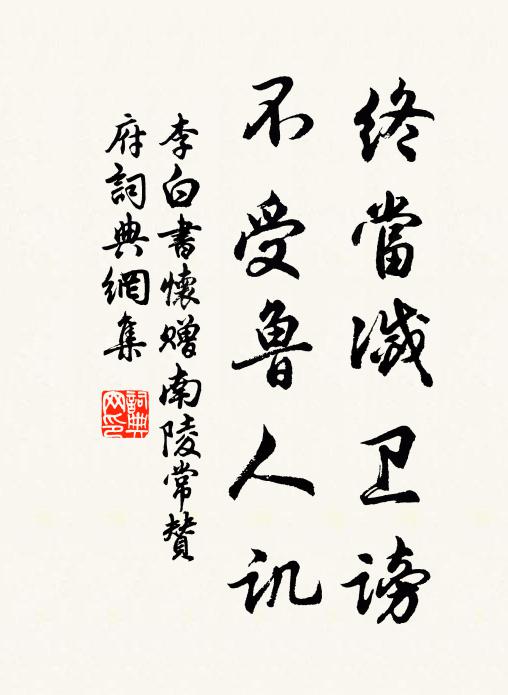 終當滅卫謗
不受魯人讥
李白書懷贈南陵常贊
府詞典網集
詞典网印